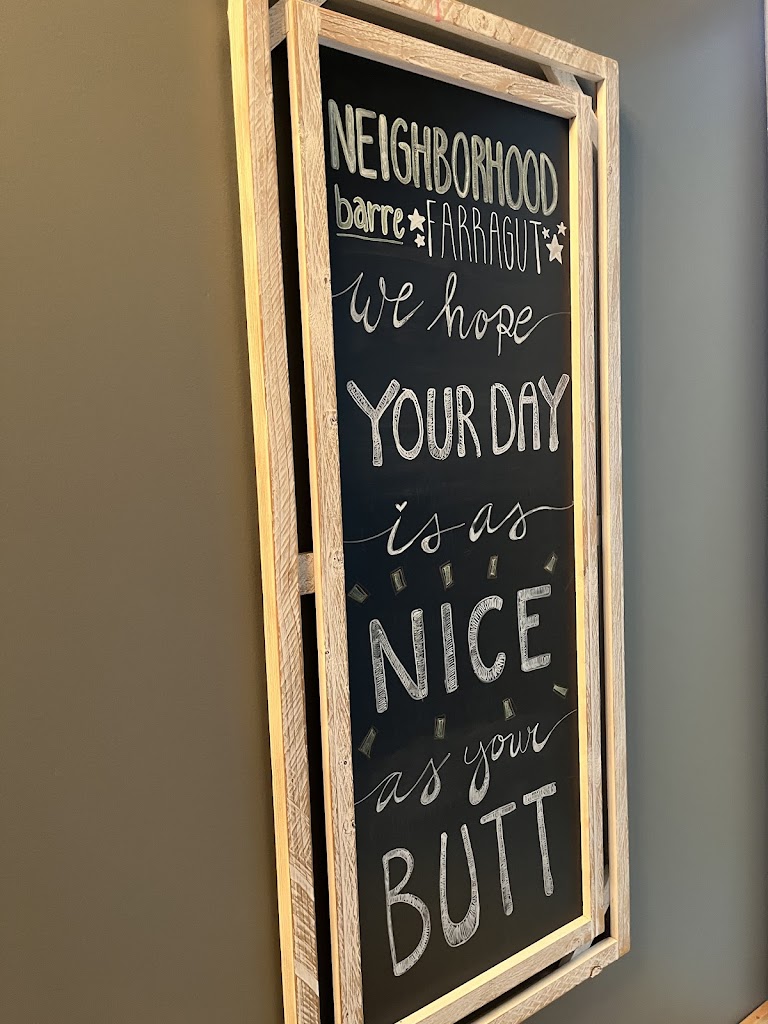 NEIGHBORHOOD
barre FARRAGUT
we hope
YOUR DAY
is as
NICE
as your
BUTT